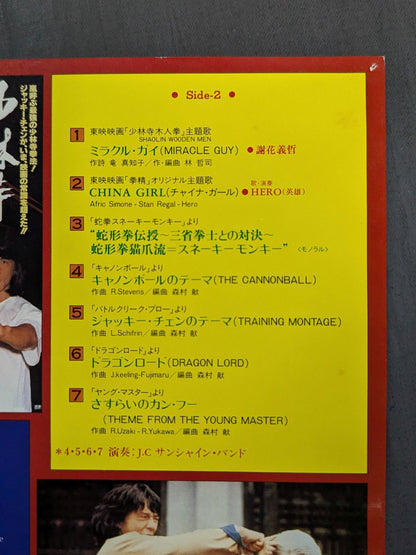 嵐呼ぶ最強の少林寺拳法!
ジャッキー・チェンが、いま、映画の常識を超えた!!
• Side-2 •
1 東映映画「少林寺木人拳」主題歌
SHAOLIN WOODEN MEN
ミラクル・ガイ(MIRACLE GUY) ●謝花義哲
作詩 竜 真知子/作・編曲 林 哲司
2 東映映画「拳精」オリジナル主題歌
CHINA GIRL(チャイナ・ガール) 歌・演奏 ●HERO(英雄)
Afric Simone - Stan Regal - Hero
3 「蛇拳スネーキーモンキー」より
“蛇形拳伝授〜三省拳士との対決〜
蛇形拳猫爪流=スネーキーモンキー” 〈モノラル〉
4 「キャノンボール」より
キャノンボールのテーマ(THE CANNONBALL)
作曲 R.Stevens/編曲 森村 献
5 「バトルクリーク・ブロー」より
ジャッキー・チェンのテーマ(TRAINING MONTAGE)
作曲 L.Schifrin/編曲 森村 献
6 「ドラゴンロード」より
ドラゴンロード(DRAGON LORD)
作曲 J.keeling-Fujimaru/編曲 森村 献
7 「ヤング・マスター」より
さすらいのカン・フー
(THEME FROM THE YOUNG MASTER)
作曲 R.Uzaki - R.Yukawa/編曲 森村 献
*4・5・6・7 演奏:J.C サンシャイン・バンド